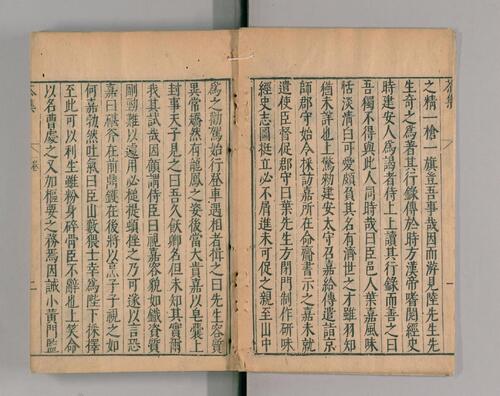 茶集
之精一槍一旗豈吾事哉因而游見陸先生先
生奇之爲著其行錄傳於時方漢帝嗜閱經史
時建安人爲謁者侍上上讀其行錄而善之曰
吾獨不得與此人同時哉曰臣邑人葉嘉風味
恬淡清白可愛頗負其名有濟世之才雖羽知
猶未詳也上驚勑建安太守召嘉給傳遣詣京
師郡守始令採訪嘉所在命齎書示之嘉未就
遣使臣督促郡守曰葉先生方閉門制作研味
經史志圖挺立必不屑進未可促之親至山中
爲之勸駕始行登車遇相者揖之曰先生容質
異常矯然有龍鳳之姿後當大貴嘉以皂囊上
封事天子見之曰吾久飫卿名但未知其實爾
我其試哉因顧謂侍臣曰視嘉容貌如鐵資質
剛勁難以遽用必槌提頓挫之乃可遂以言恐
嘉曰碪斧在前鼎鑊在後將以烹子子視之如
何嘉勃然吐氣曰臣山藪猥士幸爲陛下採擇
至此可以利生雖粉身碎骨臣不辭也上笑命
以名曹處之又加樞要之務焉因誡小黃門監
茶集 卷 二